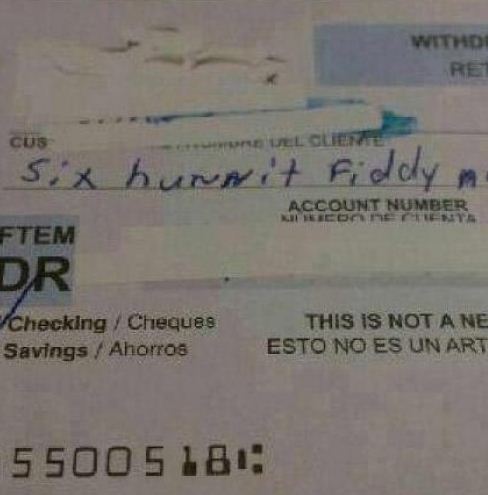 WITHD
RET
CUS DEL CLIENTE
Six hunnit Fiddy
ACCOUNT NUMBER
NUMERO DE CUENTA
FTEM
DR
Checking / Cheques
Savings / Ahorros
THIS IS NOT A NE
ESTO NO ES UN ART
5500518